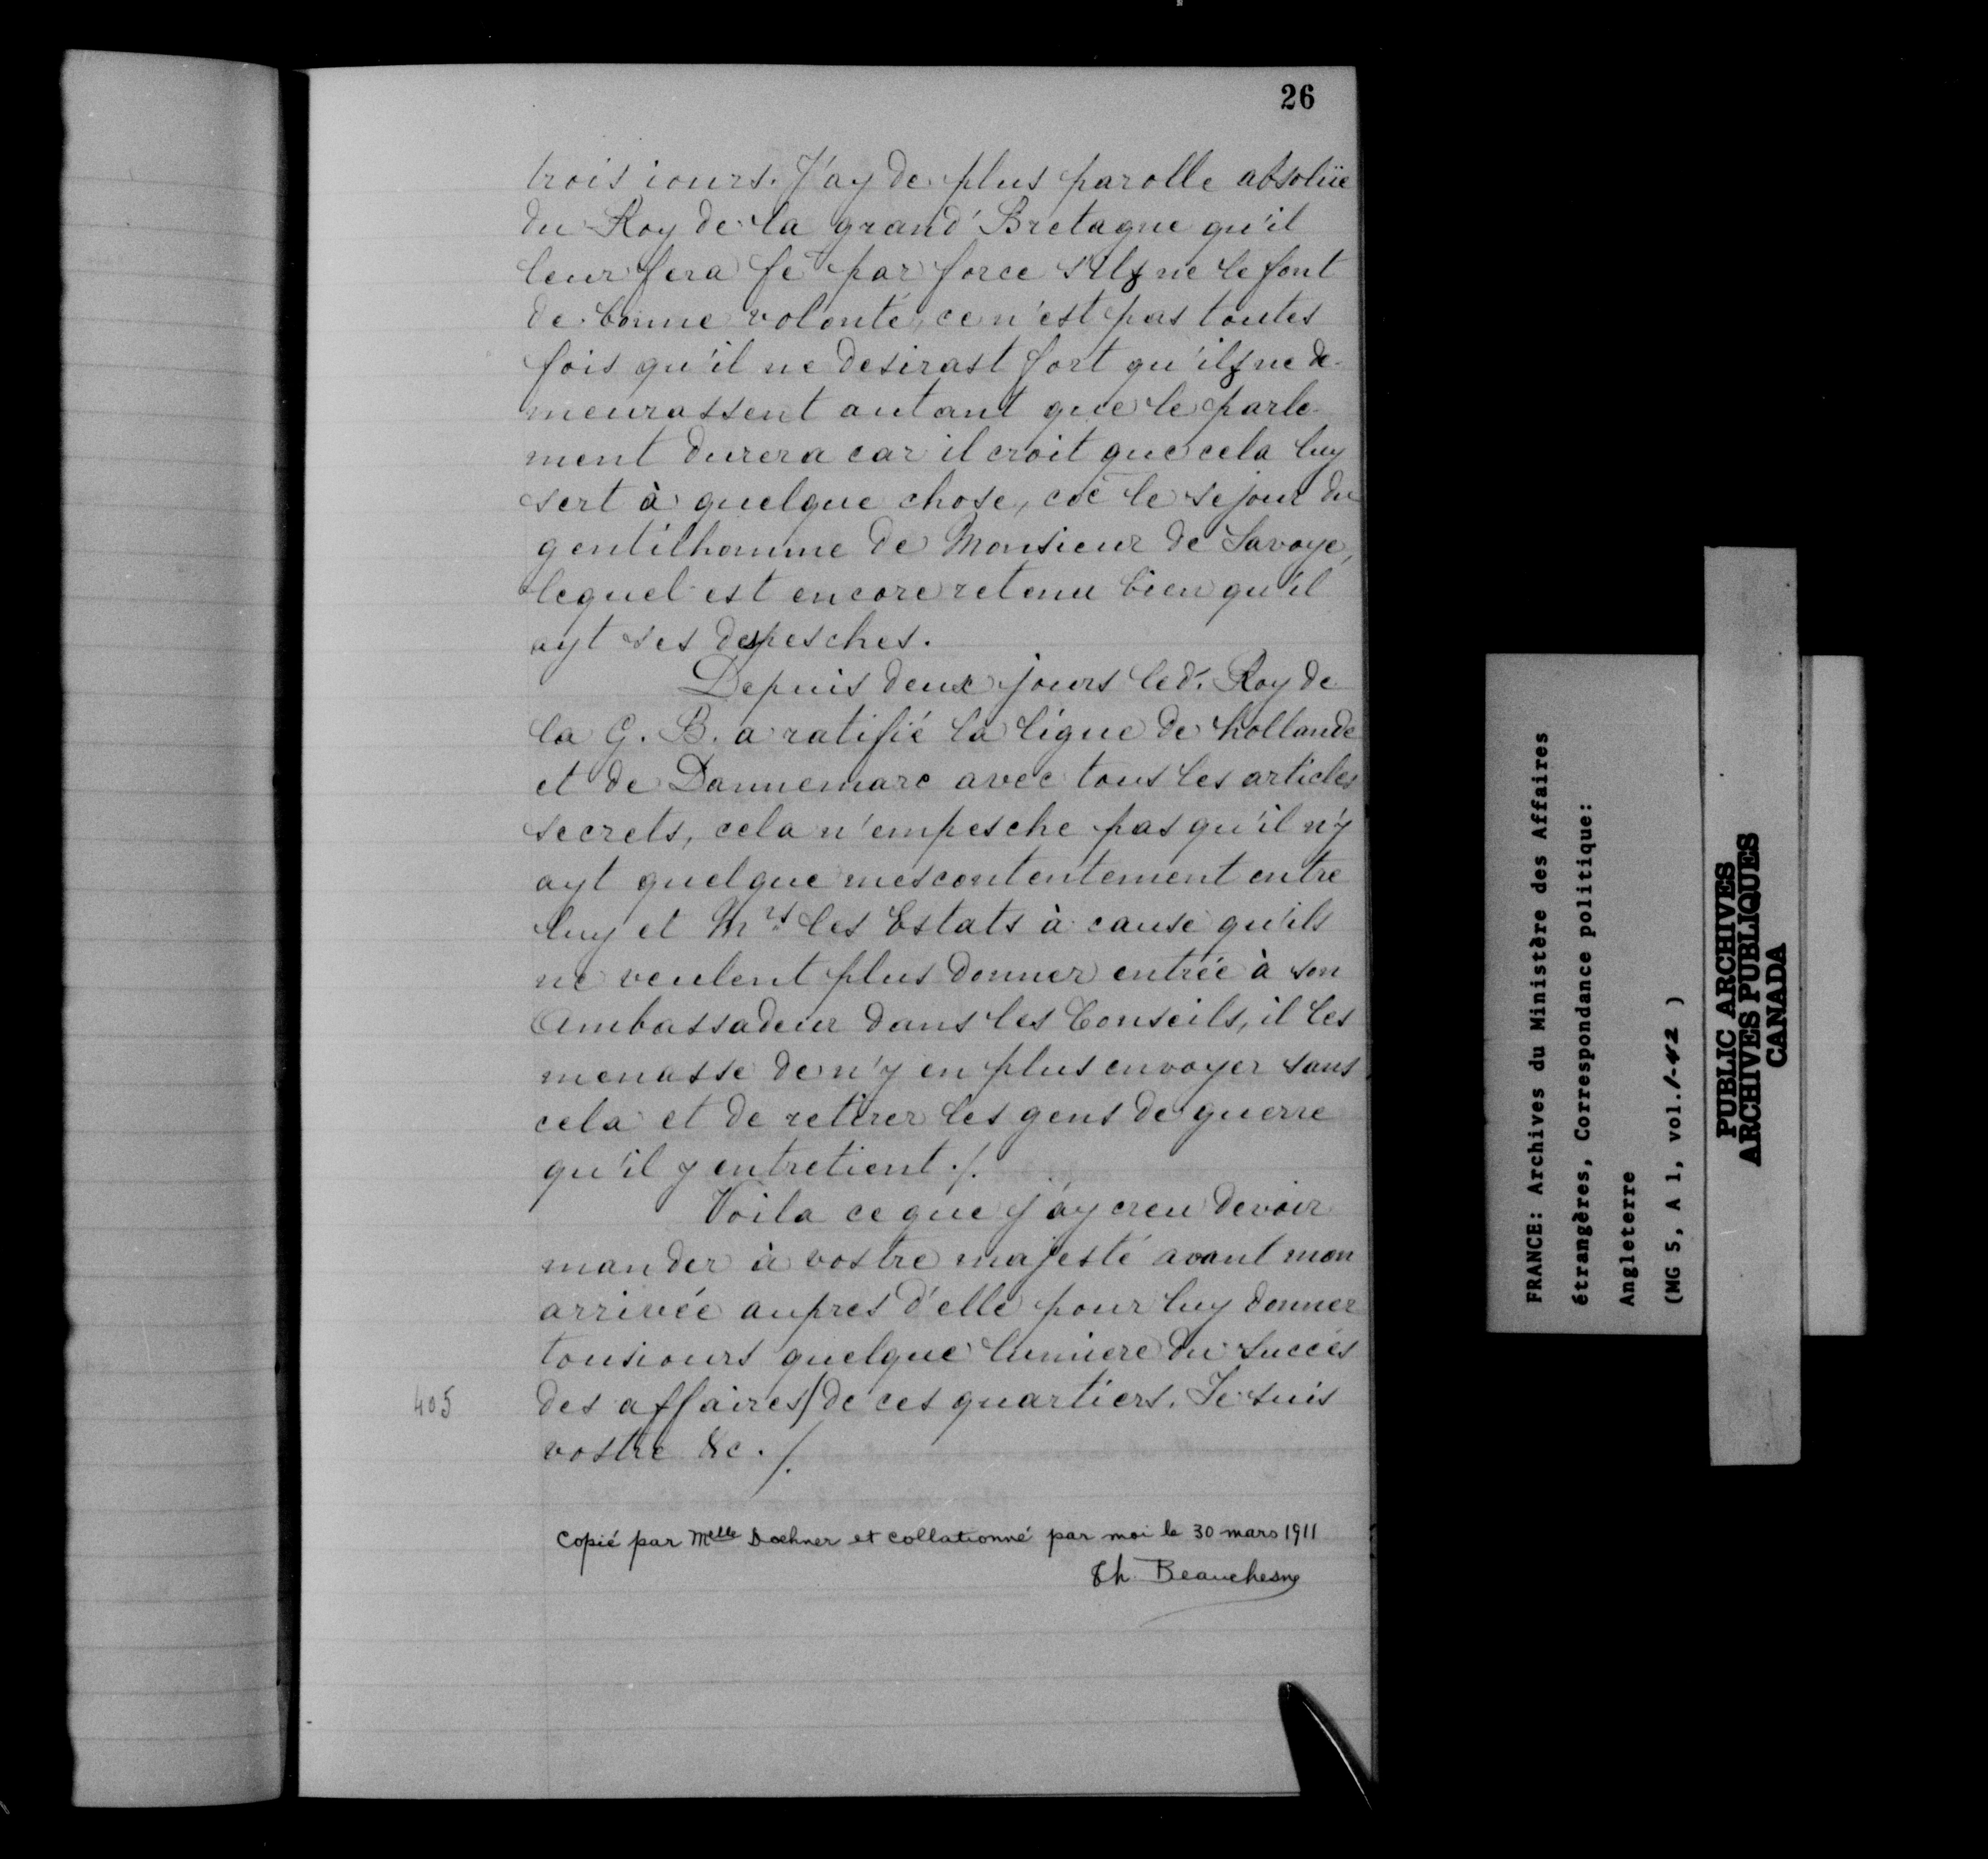 26
trois iours. J'ay de plus parolle absolüe
du Roy de la grand' Bretagne qu'il
leur fera fe par force s'ilz ne le font
de bonne volonté, ce n'est pas toutes
fois qu'il ne desirast fort qu'ilz ne de-
meurassent autant que le parle-
ment durera car il croit que cela luy
sert à quelque chose, cōe le sejour du
gentilhomme de Monsieur de Savoye,
lequel est encore retenu bien qu'il
ayt ses despesches.
Depuis deux jours led. Roy de
la G. B. a ratifié la ligue de hollande
et de Dannemarc avec tous les articles
secrets, cela n'empesche pas qu'il n'y
ayt quelque mescontentement entre
luy et Mrs les Estats à cause qu'ils
ne veulent plus donner entrée à son
Ambassadeur dans les Conseils, il les
menasse de n'y en plus envoyer sans
cela et de retirer les gens de guerre
qu'il y entretient ./.
Voila ce que j'ay creu devoir
mander à vostre majesté avant mon
arrivée aupres d'elle pour luy donner
tousiours quelque lumiere du succés
405 des affaires/de ces quartiers. Je suis
vostre &c. /.
Copié par Melle Doehner et collationné par moi le 30 mars 1911
Th. Beauchesne
FRANCE: Archives du Ministère des Affaires
étrangères, Correspondance politique:
Angleterre
(MG 5, A 1, vol. 1-42 )
PUBLIC ARCHIVES
ARCHIVES PUBLIQUES
CANADA